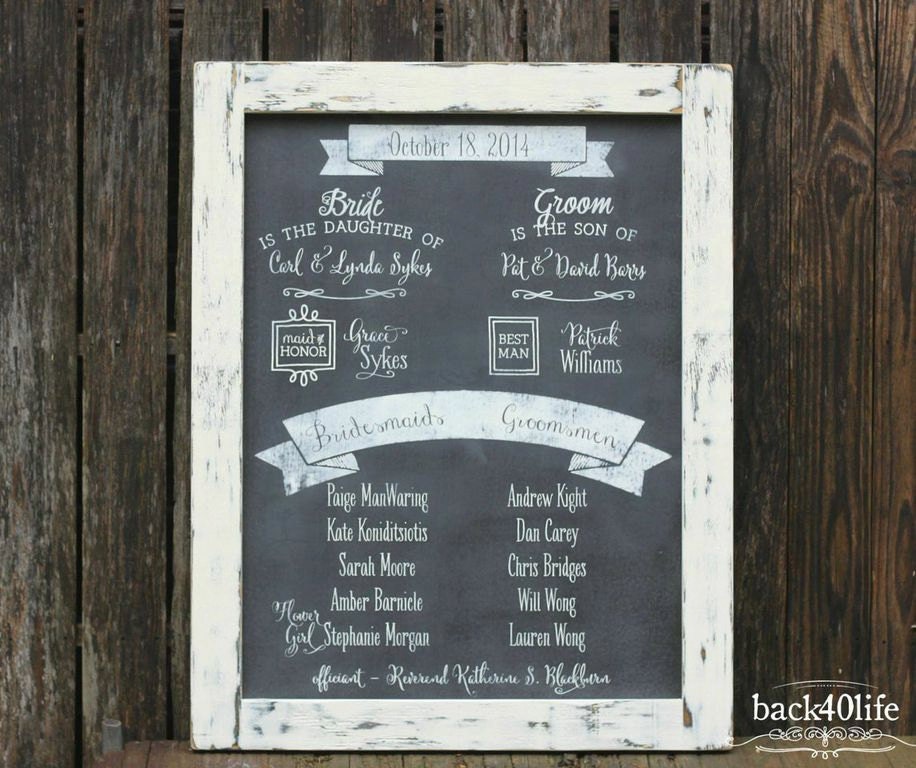 October 18, 2014
Bride
IS THE DAUGHTER OF
Carl & Lynda Sykes
Groom
IS THE SON OF
Pat & David Barrs
maid of
HONOR
Grace
Sykes
BEST
MAN
Patrick
Williams
Bridesmaids
Groomsmen
Paige ManWaring
Kate Koniditsiotis
Sarah Moore
Amber Barnicle
Flower
Girl
Stephanie Morgan
Andrew Kight
Dan Carey
Chris Bridges
Will Wong
Lauren Wong
officiant – Reverend Katherine S. Blackburn
back40life